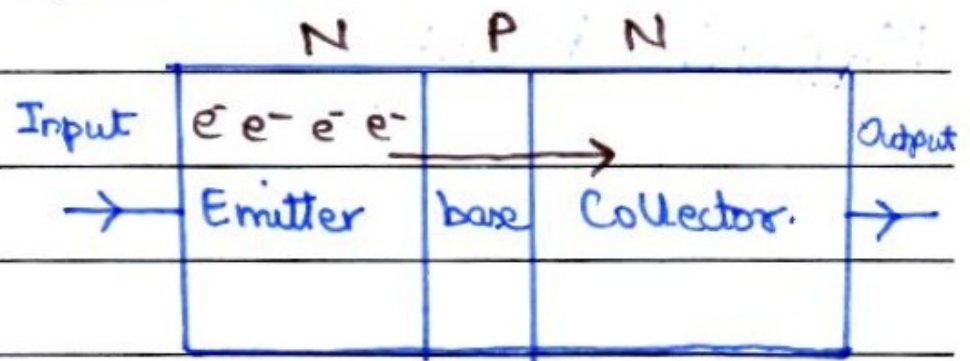 N P N
Input e⁻ e⁻ e⁻ e⁻ Output
Emitter base Collector.